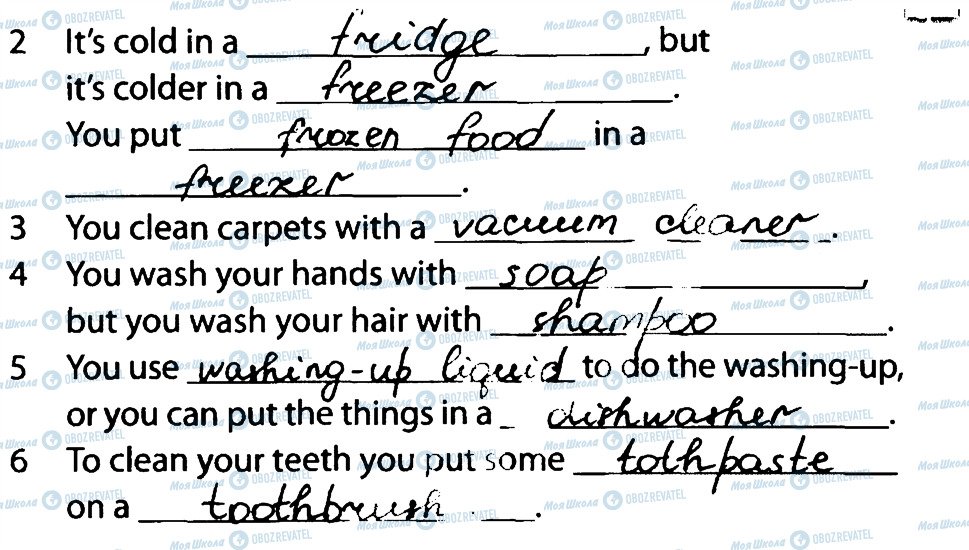 2 It's cold in a fridge, but
it's colder in a freezer.
You put frozen food in a
freezer.
3 You clean carpets with a vacuum cleaner.
4 You wash your hands with soap,
but you wash your hair with shampoo.
5 You use washing-up liquid to do the washing-up,
or you can put the things in a dishwasher.
6 To clean your teeth you put some tothpaste
on a toothbrush.